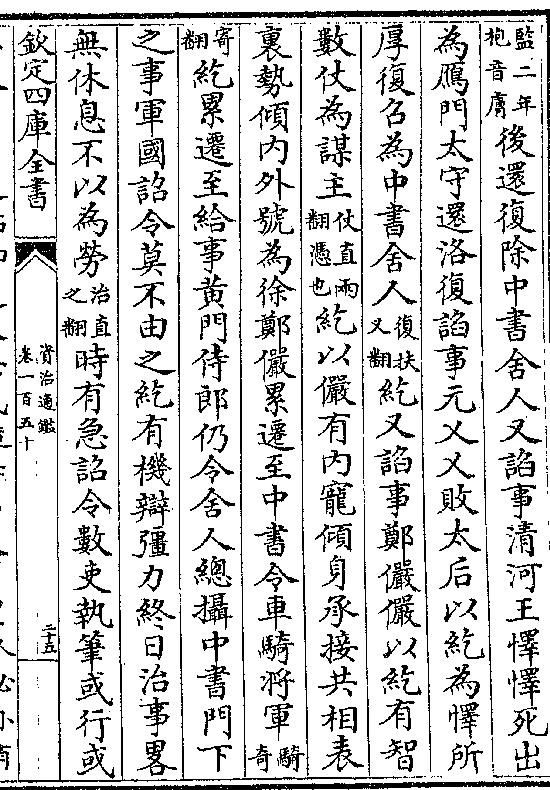 監二年抱音膚後還復除中書舍人又諂事清河王懌懌死出
為鴈門太守還洛復諂事元乂乂敗太后以紇為懌所
厚復召為中書舍人復扶又翻紇又諂事鄭儼儼以紇有智
數仗為謀主仗直兩翻憑也紇以儼有內寵傾身承接共相表
裏勢傾內外號為徐鄭儼累遷至中書令車騎將軍騎奇
寄翻紇累遷至給事黄門侍郎仍令舍人總攝中書門下
之事軍國詔令莫不由之紇有機辯彊力終日治事畧
無休息不以為勞治直之翻時有急詔令數吏執筆或行或
欽定四庫全書
資治通鑑
卷一百五十
二十五